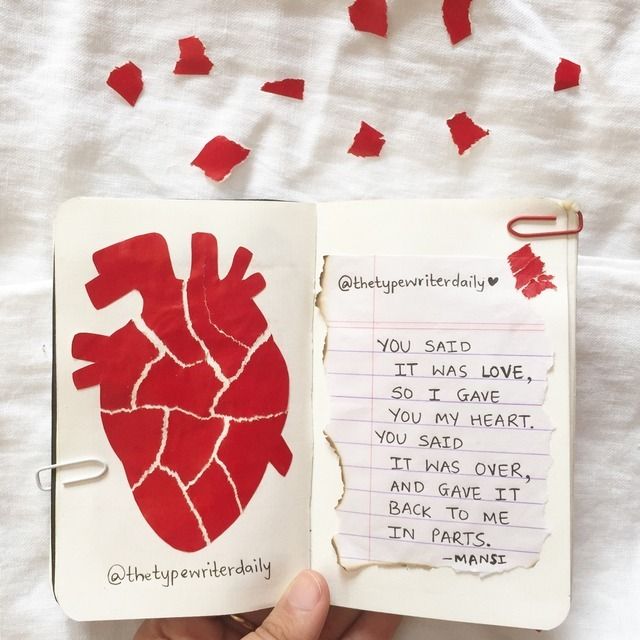 @thetypewriterdaily
@thetypewriterdaily♥
YOU SAID
IT WAS LOVE,
SO I GAVE
YOU MY HEART.
YOU SAID
IT WAS OVER,
AND GAVE IT
BACK TO ME
IN PARTS.
-MANSI